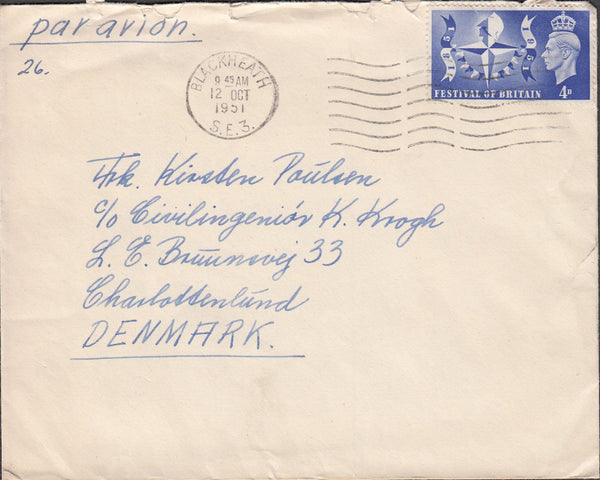 par avion.
26.
BLACKHEATH
9 45 AM
12 OCT
1951
S.E.3.
1851
1951
FESTIVAL OF BRITAIN
4D
Frk. Kirsten Poulsen
c/o Civilingeniór K. Krogh
L. E. Bruunsvej 33
Charlottenlund
DENMARK.